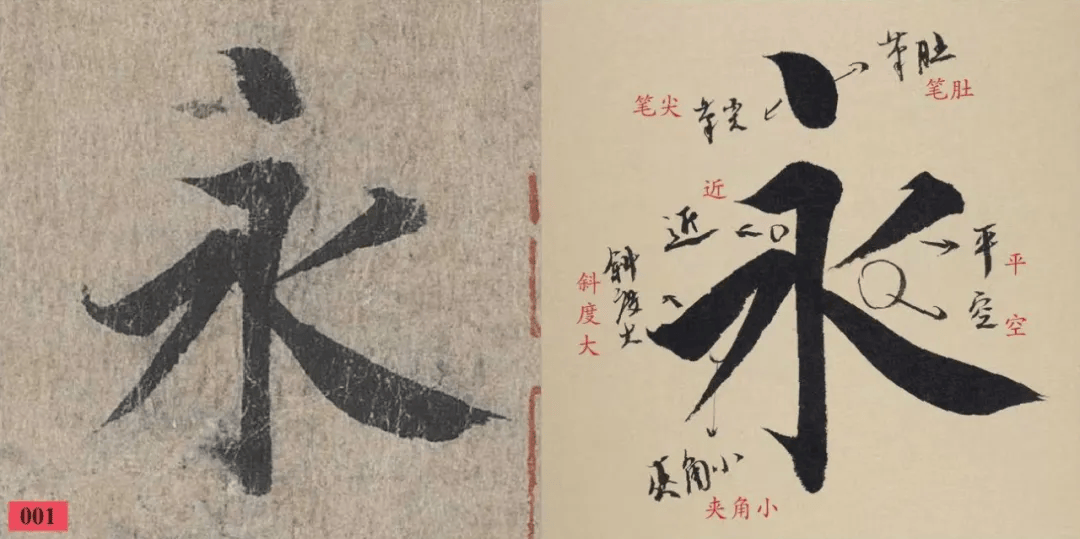 永
001
永
筆肚
笔肚
笔尖
筆尖
近
近
平
平
空
空
斜度大
斜度大
夹角小
夾角小